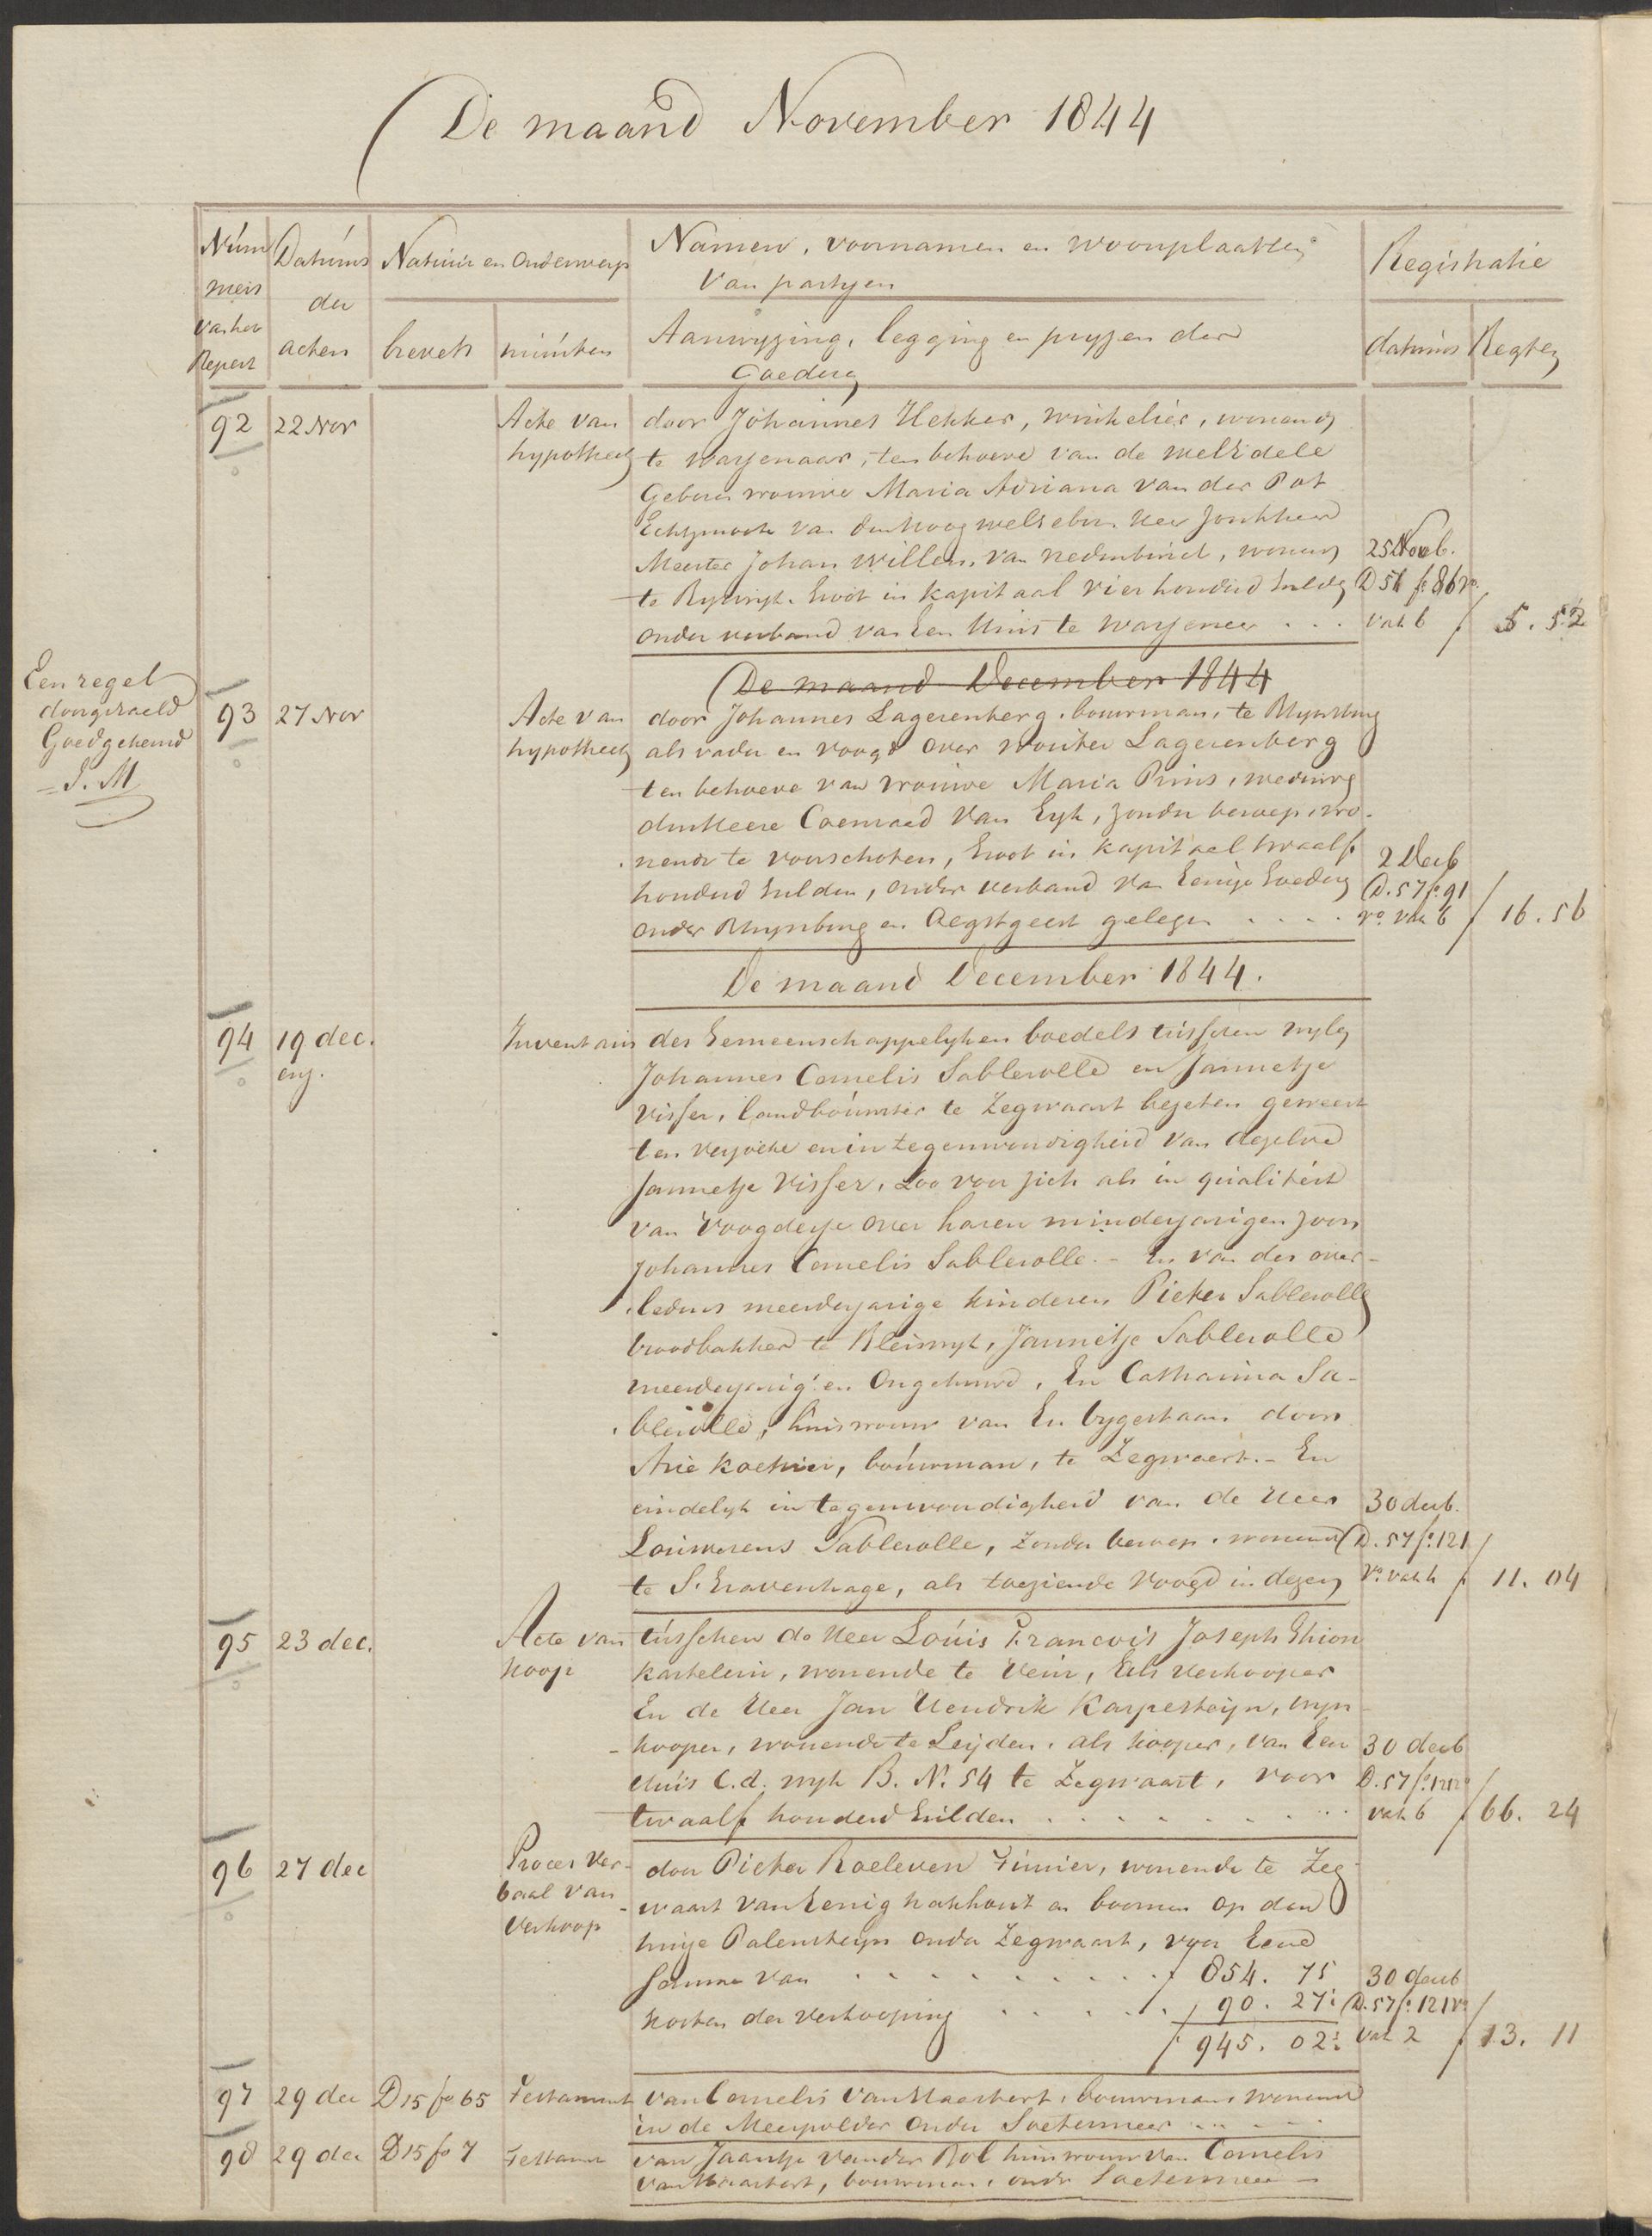 De maand November 1844
Num Datums Natuur en Onderwerp Namen, voornamen en woonplaatsen Registratie
mers der van partyen
van het
Repert acten brevets minuten Aanwyzing, legging en pryzen der datums Regten
Goederen
92 22 Nov Acte van door Johannes Hekker, winkelier, wonende
hypotheek te Wassenaar, ten behoeve van de weledele
Geboren vrouwe Maria Adriana van der Pot
Echtgenoote van den hoog welgebn. Heer Jonkheer
Meester Johan Willem van , wonende 25 Novb.
te Ryswyk. Groot in kapitaal vier honderd Gulden D 57 fo 86 vo
onder verband van Een Huis te Wassenaar . . . vak 6 f 5. 52
De maand December 1844
Een regel
doorgehaald
Goedgekeurd
S. M
93 27 Nov Acte van door Johannes Lagerenberg, bouwman, te Rhynsburg
hypotheek als vader en voogd over Wouter Lagerenberg
ten behoeve van vrouwe Maria Prins, weduwe
den Heere Coenraad van Eyk, zonder beroep, wo-
nende te Voorschoten, Groot in kapitaal twaalf 2 Decb
honderd Gulden, onder verband van Eenige Goederen D. 57 fo. 91
onder Rhynsburg en Oegstgeest gelegen . . . . vo. vak 6 f 16. 56
De maand December 1844.
94 19 dec. Inventaris des Gemeenschappelyken boedels tusschen wylen
en Johannes Cornelis Sablerolle en Jannetje
Visser, landbouwster te Zegwaart bezeten geweest
ten verzoeke en in tegenwoordigheid van dezelve
Jannetje Visser, Zoo voor zich als in qualiteit
van Voogdesse over haren minderjarigen zoon
Johannes Cornelis Sablerolle. - En van des over-
ledens meerderjarige kinderen Pieter Sablerolle
broodbakker te Bleiswyk, Jannetje Sablerolle
meerderjarig en Ongehuwd, En Catharina Sa-
blerolle, huisvrouw van En bygestaan door
Arie , bouwman, te Zegwaart. - En
eindelyk in tegenwoordigheid van de Heer 30 decb.
Louwerens Sablerolle, zonder beroep, wonende D. 57 fo. 121
te S. Gravenhage, als toeziende voogd in dezen vo. vak 4 f 11. 04
95 23 dec. Acte van tusschen de Heer Louis Francois Joseph Ghion
Koop kastelein, wonende te Veur, Als Verkooper
En de Heer Jan Hendrik Karpesteyn, wyn-
kooper, wonende te Leyden, als kooper, van Een 30 decb
Huis C.a. wyk B. No. 54 te Zegwaart, voor D. 57 fo. 121 vo
twaalf honderd Gulden . . . . . . . . vak 6 f 66. 24
96 27 dec Proces Ver- door Pieter Roeleven Timmer, wonende te Zeg-
baal van waart van Eenig hakhout en boomen op den
Verkoop huize Palensteyn onder Zegwaart, voor Eene
somma van . . . . . . . . . f 854. 75 30 decb
Kosten der Verkooping . . . . . . , 90. 27: D. 57 fo. 121 vo
f 945. 02: vak 2 f 13. 11
97 29 dec D 15 fo 65 Testament van Cornelis van Maastert, bouwman, wonende
in de Meerpolder onder Soetermeer . . . . .
98 29 dec D 15 fo 7 Testament van Jaantje van der Bol huisvrouw van Cornelis
van Maastert, bouwman, onder Soetermeer -